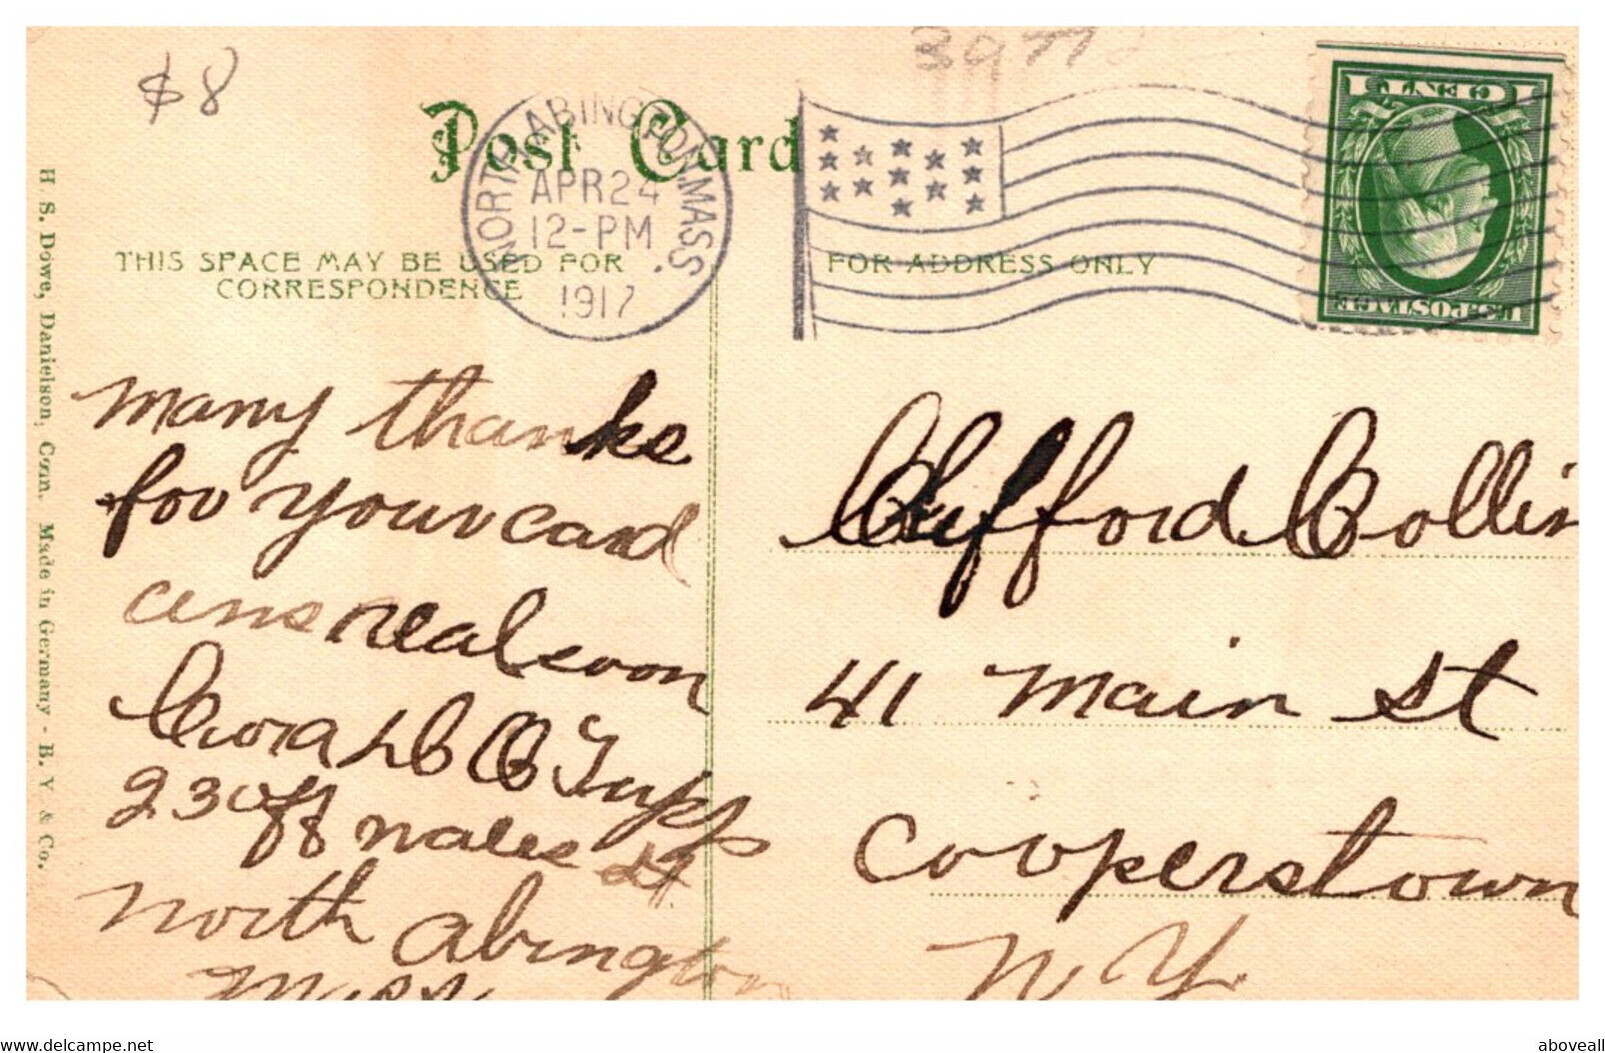 $8
3977
Post Card
NORTH ABINGTON, MASS.
APR 24
12-PM
1917
1 CENT 1
U.S. POSTAGE
THIS SPACE MAY BE USED FOR
CORRESPONDENCE
FOR ADDRESS ONLY
H S. Dowe, Danielson, Conn. Made in Germany - B. V. & Co.
many thanks
for your card
ans real soon
Cora L
230 st
North Abington
Mass
Clifford Collin
41 Main St
Cooperstown
N. Y.
www.delcampe.net
aboveall